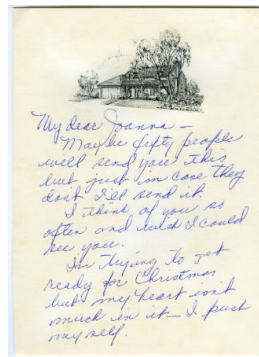 My dear Joanna –
Maybe fifty people
will send you this
but just in case they
dont I'll send it
I think of you so
often and wish I could
see you.
I'm trying to get
ready for Christmas
but my heart isn't
much in it – I push
myself.